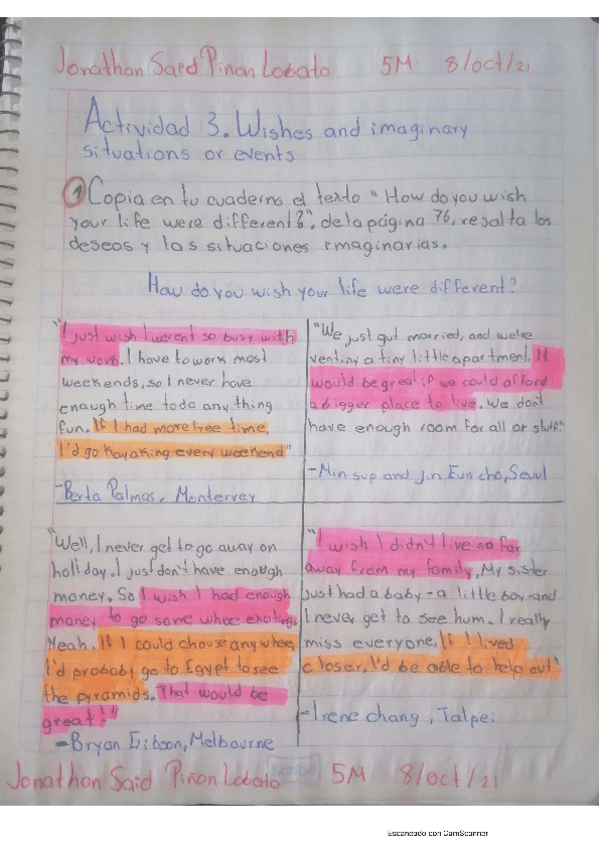 Jonathan Saed Piñon Lobato 5M 8/oct/21
Actividad 3. Wishes and imaginary
situations or events
1 Copia en tu cuaderno el texto "How do you wish
your life were different?", de la página 76, resalta los
deseos y las situaciones imaginarias.
How do you wish your life were different?
"I just wish I weren't so busy with
my work. I have to work most
weekends, so I never have
enough time to do any thing
fun. If I had more free time,
I'd go Kayaking every weekend"
-Berta Palmas, Monterrey
"We just got married, and we're
ventiny a tiny little apartment. It
would be great if we could afford
a bigger place to live. We don't
have enough room for all or stuff."
-Min sup and Jin Eun cho, Seoul
"Well, I never get to go away on
holiday. I just don't have enough
money. So I wish I had enough
money to go some whee exciting.
Yeah. If I could choose any where,
I'd probaby go to Egypt to see
the pyramids. That would be
great!"
-Bryan Gibson, Melbourne
"I wish I didn't live so far
away from my family. My sister
just had a baby - a little boy - and
I never get to see hum. I really
miss everyone. If I lived
closer, I'd be able to help out"
-Irene chang, Taipei
Scribe
Jonathan Said Piñon Lobato 5M 8/oct/21
Escaneado con CamScanner